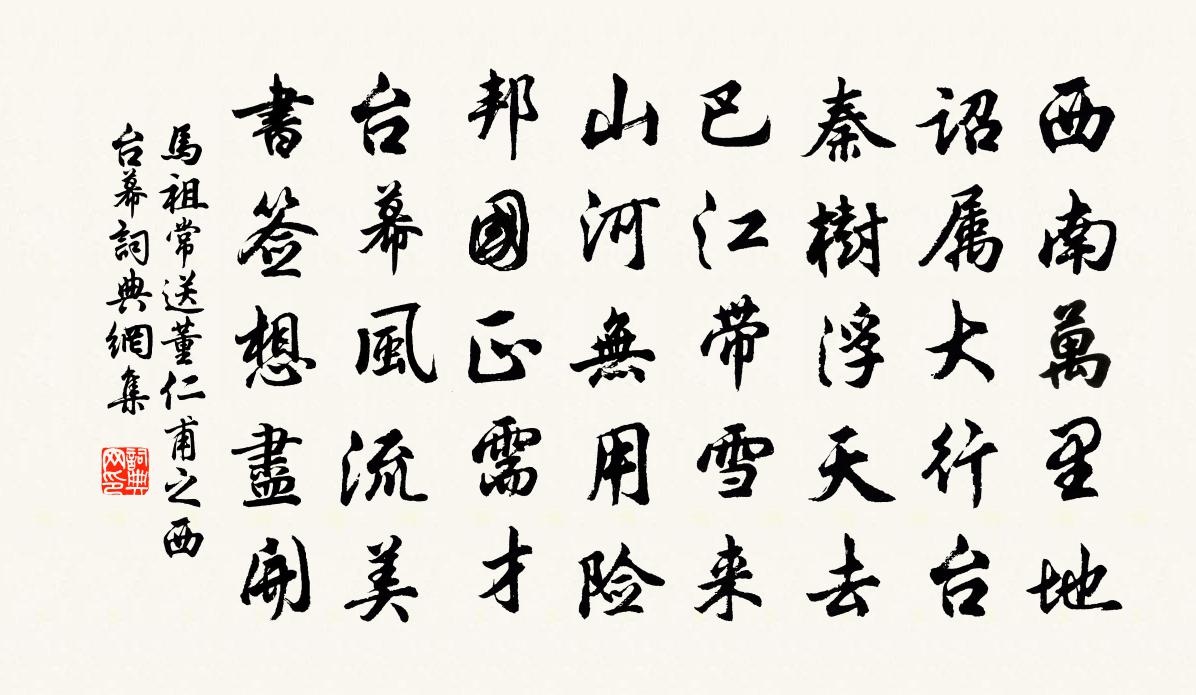 西南萬里地
詔属大行台
秦樹浮天去
巴江带雪来
山河無用险
邦國正需才
台幕風流美
書签想盡開
馬祖常送董仁甫之西
台幕詞典網集
詞典网印